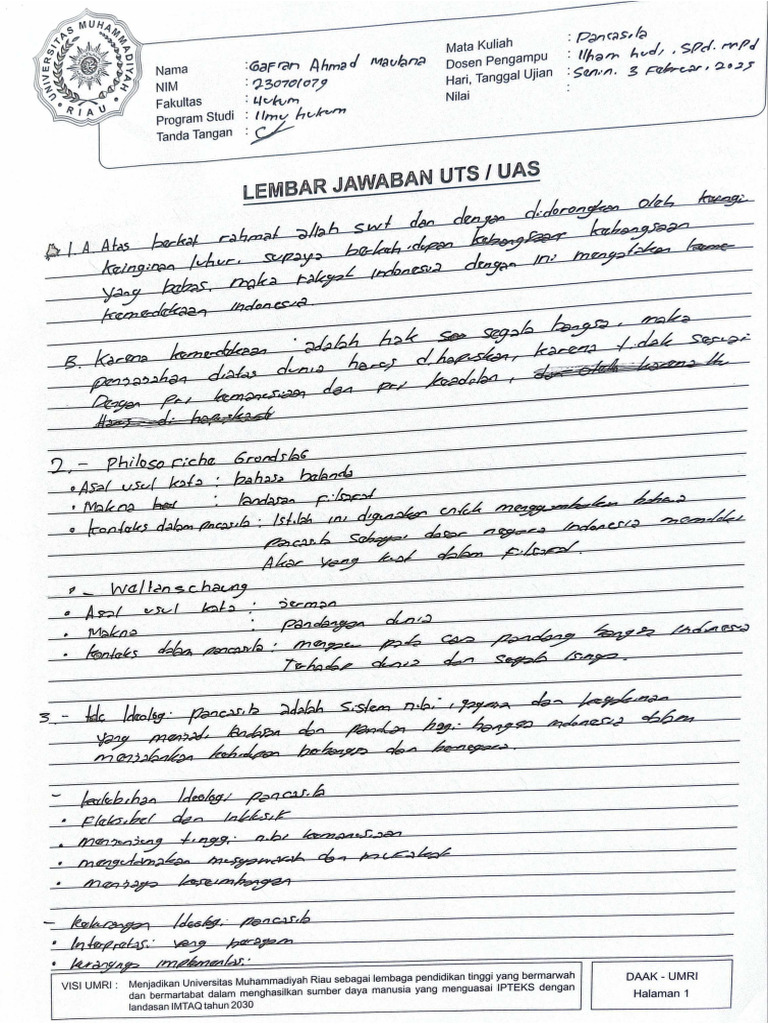 UNIVERSITAS MUHAMMADIYAH
RIAU
Nama : Gafran Ahmad Maulana
NIM : 230701079
Fakultas : Hukum
Program Studi : Ilmu hukum
Tanda Tangan :
Mata Kuliah : Pancasila
Dosen Pengampu : Ilham hudi, SPd. MPd
Hari, Tanggal Ujian : Senin. 3 Februari, 2025
Nilai :
LEMBAR JAWABAN UTS / UAS
1. A. Atas berkat rahmat allah swt dan dengan didorongkan oleh
keinginan luhur, supaya berkehidupan kebangsaan
yang bebas, maka rakyat Indonesia dengan ini mengatakan
kemerdekaan Indonesia.
B. Karena kemerdekaan adalah hak segala bangsa, maka
penjajahan diatas dunia harus dihapuskan, karena tidak sesuai
Dengan pri kemanusiaan dan pri keadilan,
2. - Philosofiche Grondslag
• Asal usul kata : bahasa belanda
• Makna : landasan filsafat
• Konteks dalam pancasila : Istilah ini digunakan untuk menggambarkan bahwa
pancasila sebagai dasar negara Indonesia memiliki
Akar yang kuat dalam filsafat.
- Weltanschaung
• Asal usul kata : Jerman
• Makna : pandangan dunia
• Konteks dalam pancasila : mengacu pada cara pandang bangsa Indonesia
Terhadap dunia dan segala isinya.
3. - Ideologi pancasila adalah sistem nilai, gagasan dan keyakinan
yang menjadi landasan dan panduan bagi bangsa Indonesia dalam
menjalankan kehidupan berbangsa dan bernegara.
- kelebihan Ideologi pancasila
• Fleksibel dan Inklusif
• menjunjung tinggi nilai kemanusiaan
• mengutamakan musyawarah dan mufakat
• menjaga keseimbangan
- kekurangan Ideologi pancasila
• Interpretasi yang beragam
• kurangnya implementasi
VISI UMRI : Menjadikan Universitas Muhammadiyah Riau sebagai lembaga pendidikan tinggi yang bermarwah
dan bermartabat dalam menghasilkan sumber daya manusia yang menguasai IPTEKS dengan
landasan IMTAQ tahun 2030
DAAK - UMRI
Halaman 1